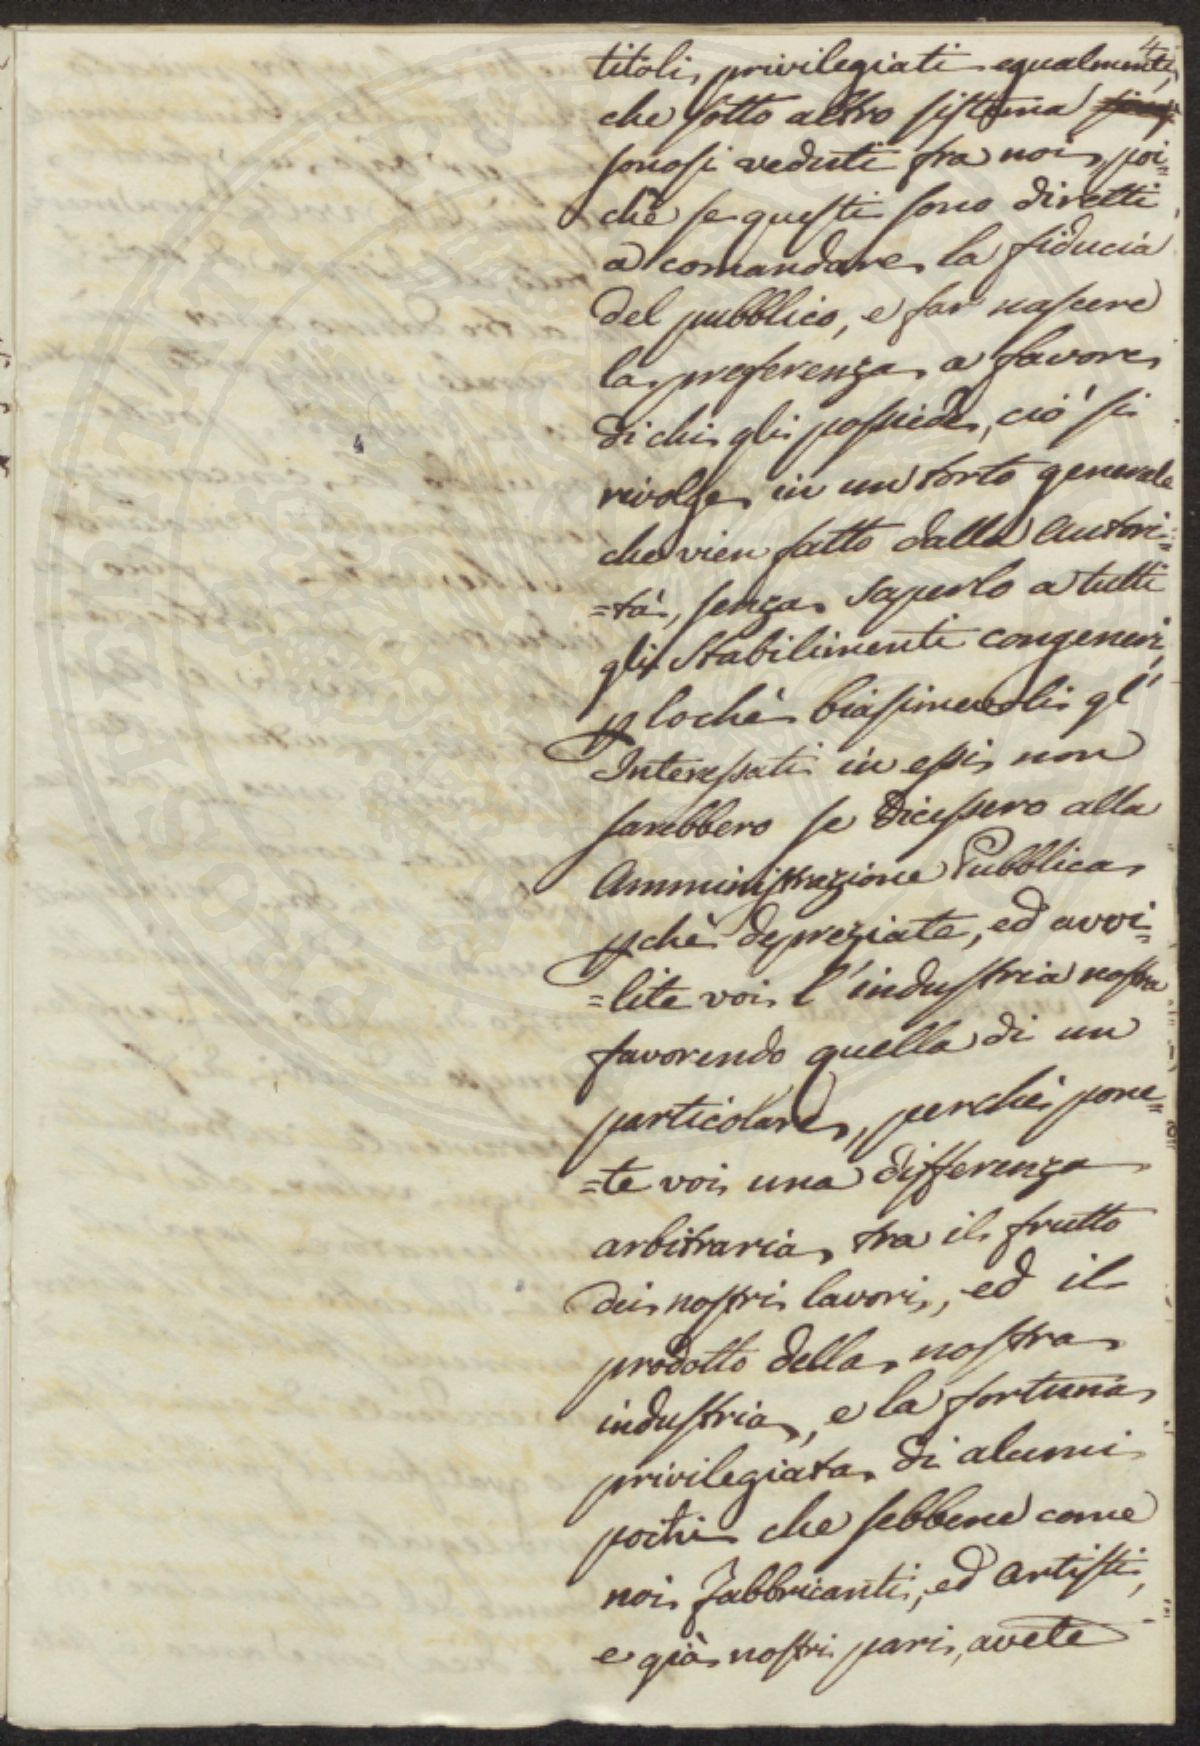 4
titoli privilegiati egualmenti,
che sotto altro sistema
sonosi veduti fra noi, poi=
chè se questi sono diretti
a comandare la fiducia
del pubblico, e far nascere
la preferenza a favore
di chi gli possiede, ciò si
rivolge in un torto generale
che vien fatto dalla Autori=
=tà, senza saperlo a tutti
gli Stabilimenti congeneri,
plochè biasimevoli gl'
Interessati in essi non
sarebbero se dicessero alla
Amministrazione Pubblica
pchè depreziate, ed avvi=
=lite voi l'industria nostra
favorendo quella di un
particolare, perchè pone=
=te voi una differenza
arbitraria tra il frutto
dei nostri lavori, ed il
prodotto della nostra
industria, e la fortuna
privilegiata di alcuni
pochi che sebbene come
noi Fabbricanti, ed Artisti,
e già nostri pari, avete